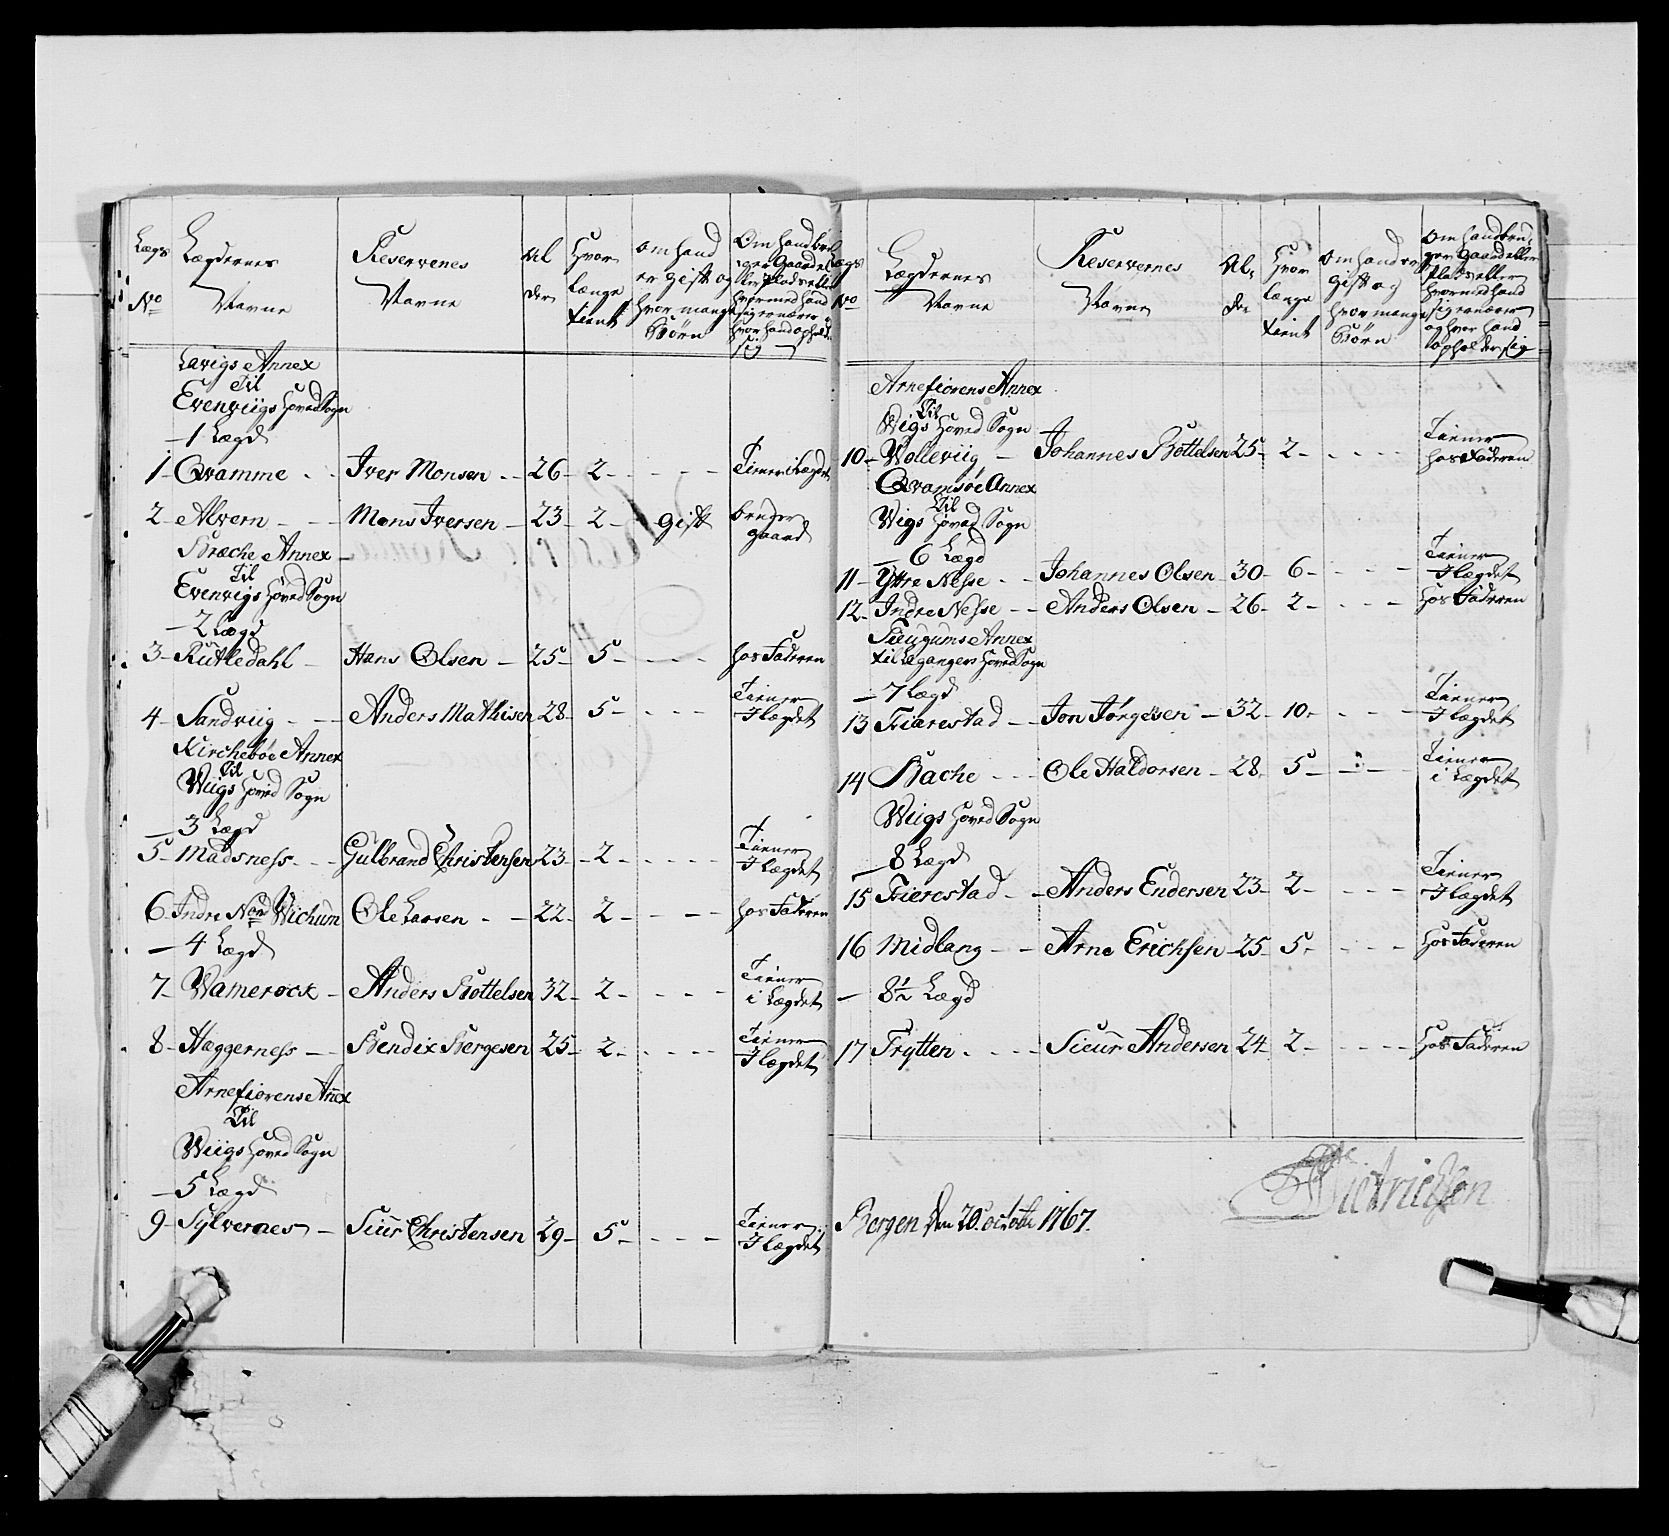 Lægs
No
Lægdernes
Navne
Reservenes
Navne
Al
der
Hvor
længe
tient
om hand
er gift og
hvor mange
Børn
Om hand bru
ger Gaard el
ler Plads eller
hvormed hand
sig ernærer
hvor hand ophold
sig
Lavigs Annex
Til
Evenviigs Hoved Sogn
1 Lægd
1 - Qvamme - - Iver Monsen - - 26 - 2 - - - - - Tiener i Lægdet
2 - Alvern - - - Mons Iversen - 23 - 2 - gift bruger
gaard
Bræche Annex
Til
Evenvigs Hoved Sogn
- 2 Lægd
3 - Rutledahl - Hans Olsen - 25 - 5 - - - - hos Faderen
4 - Sandviig - - - Anders Mathisen 28 - 5 - - - - Tiener
I Lægdet
Kirchebøe Annex
Til
Wiigs Hoved Sogn
- 3 Lægd
5 - Madsness - - - Gulbrand Christensen 23 - 2 - - - - - Tiener
I Lægdet
6 Indre Nord Wichum Ole Larsen - - 22 - 2 - - - - hos Faderen
- 4 Lægd
7 - Wamerock - Anders Bottelsen 32 - 2 - - - - Tiener
i Lægdet
8 - Hæggerness - - Bendix Bergesen 25 - 2 - - - - - Tiener
I Lægdet
Arnefiorens Añex
Til
Wiigs Hoved Sogn
- 5 Lægd
9 - Sylvernes - Siur Christensen 29 - 5 - - - - Tiener
I Lægdet
Lægs
No
Lægdernes
Navne
Reservernes
Navne
Al
der
Hvor
længe
tient
om hand er
gift og
hvor mange
Børn
Om hand bru
ger Gaard eller
Plads eller
hvormed hand
sig ernærer
og hvor hand
opholder sig
Arnefiorens Annex
Til
Wigs Hoved Sogn
10 - Wolleviig - Johannes Bottelsen 25 - 2 - - - - - Tiener
hos Faderen
Qvamsøe Annex
Til
Wigs Hoved Sogn
- 6 Lægd
11 - Yttre Nesse - - Johannes Olsen - 30 - 6 - - - - Tiener
I Lægdet
12 - Indre Nesse - - Anders Olsen - 26 - 2 - - - - hos Faderen
Annex
til Legangers Hoved Sogn
- 7 Lægd
13 Fiærestad - - Jon Jørgesen - 32 - 10 - - - - Tiener
I Lægdet
14 Bache - - - Ole Haldorsen - 28 - 5 - - - Tiener
i Lægdet
Wiigs Hoved Sogn
- 8 Lægd
15 Fierestad - - Anders Endersen 23 - 2 - - - - Tiener
I Lægdet
16 Midlang - - Arne Erichsen - 25 - 5 - - - - hos Faderen
- 8½ Lægd
17 Frytten - - - - Sieur Andersen 24 - 2 - - - - - hos Faderen
Dietrichson
Bergen den 20 octobr 1767.